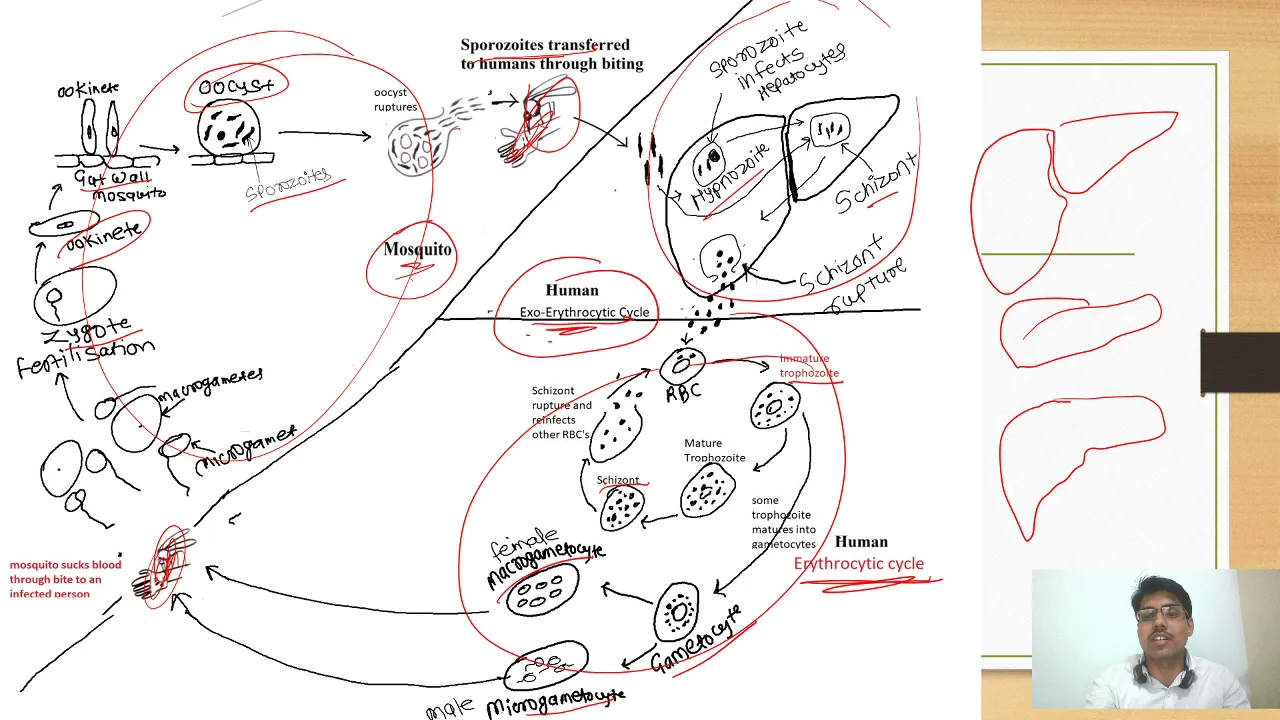 Sporozoites transferred
to humans through biting
ookinete
oocyst
oocyst
ruptures
Gut wall
mosquito
sporozoites
ookinete
Mosquito
Zygote
fertilisation
macrogametes
microgamet
mosquito sucks blood
through bite to an
infected person
sporozoite
infects
Hepatocytes
Hypnozoite
Schizont
Schizont
rupture
Human
Exo-Erythrocytic Cycle
RBC
Immature
trophozoite
Schizont
rupture and
reinfects
other RBC's
Mature
Trophozoite
Schizont
some
trophozoite
matures into
gametocytes
Human
Erythrocytic cycle
female
macrogametocyte
Gametocyte
male
microgametocyte